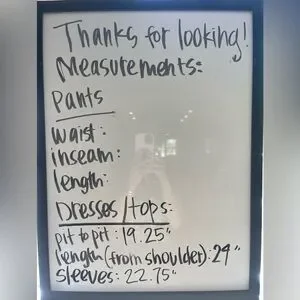 Thanks for looking!
Measurements:
Pants
waist:
inseam:
length:
Dresses/tops:
pit to pit: 19.25"
length (from shoulder): 29"
sleeves: 22.75"